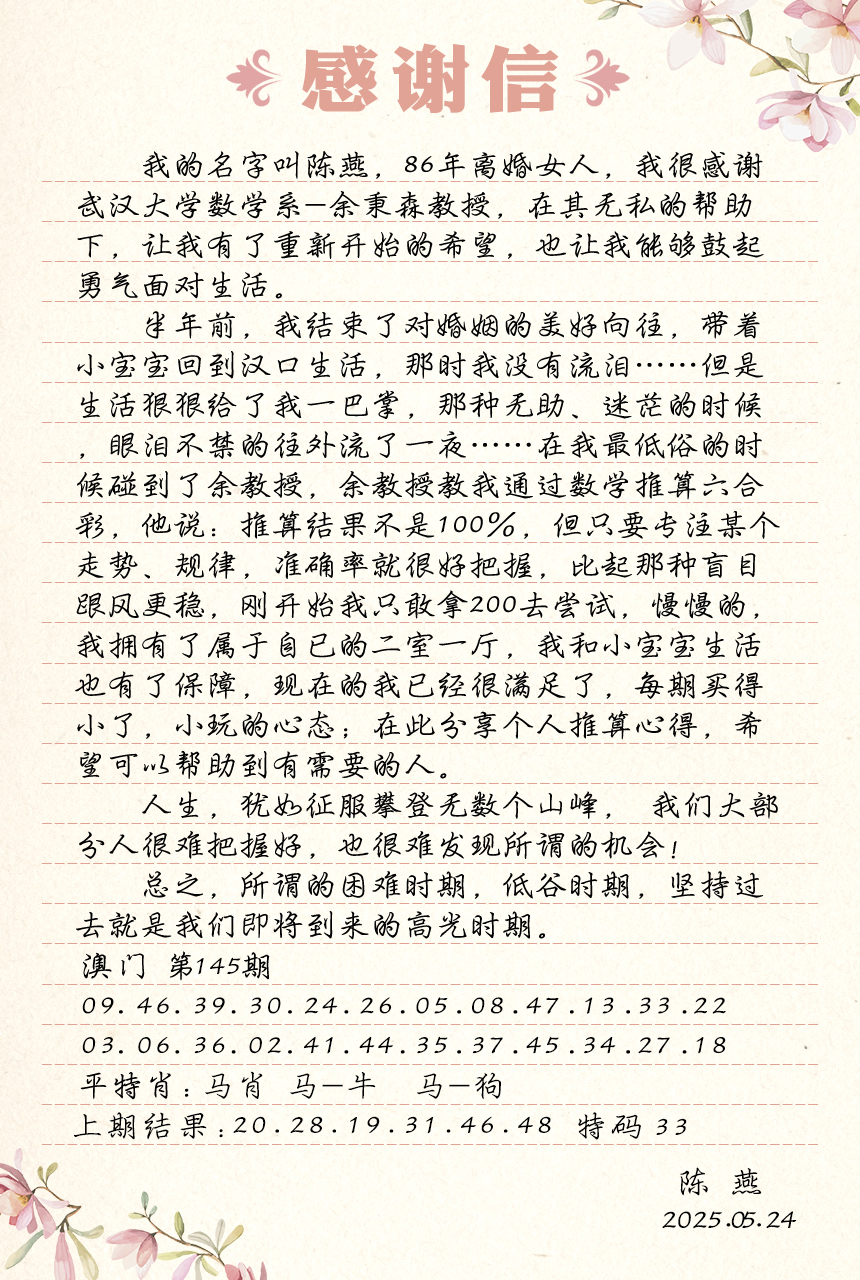 感谢信
我的名字叫陈燕，86年离婚女人，我很感谢
武汉大学数学系—余秉森教授，在其无私的帮助
下，让我有了重新开始的希望，也让我能够鼓起
勇气面对生活。
半年前，我结束了对婚姻的美好向往，带着
小宝宝回到汉口生活，那时我没有流泪……但是
生活狠狠给了我一巴掌，那种无助、迷茫的时候
，眼泪不禁的往外流了一夜……在我最低俗的时
候碰到了余教授，余教授教我通过数学推算六合
彩，他说：推算结果不是100%，但只要专注某个
走势、规律，准确率就很好把握，比起那种盲目
跟风更稳，刚开始我只敢拿200去尝试，慢慢的，
我拥有了属于自已的二室一厅，我和小宝宝生活
也有了保障，现在的我已经很满足了，每期买得
小了，小玩的心态；在此分享个人推算心得，希
望可以帮助到有需要的人。
人生，犹如征服攀登无数个山峰， 我们大部
分人很难把握好，也很难发现所谓的机会！
总之，所谓的困难时期，低谷时期，坚持过
去就是我们即将到来的高光时期。
澳门 第145期
09.46.39.30.24.26.05.08.47.13.33.22
03.06.36.02.41.44.35.37.45.34.27.18
平特肖：马肖 马—牛 马—狗
上期结果：20.28.19.31.46.48 特码 33
陈 燕
2025.05.24